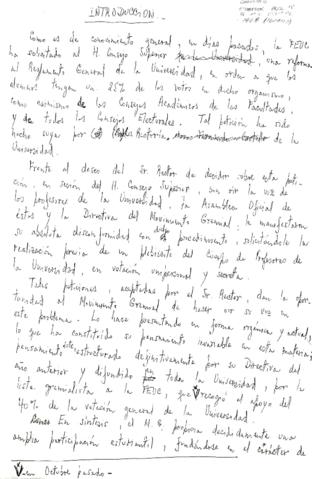 INTRODUCCION.-
Como es de conocimiento general, en días pasados, la FEUC
ha solicitado al H. Consejo Superior una reforma
al Reglamento General de la Universidad, en orden a que los
alumnos tengan un 25% de los votos en dicho organismo,
como asimismo de los Consejos Académicos de las Facultades
y de todos los Consejos Electorales. Tal petición ha sido
hecha suya por Rectoría
Universidad.
Frente al deseo del Sr. Rector de decidir sobre esta peti-
ción, en sesión del H. Consejo Superior, sin oir la voz de
los profesores de la Universidad, la Asamblea Oficial de
éstos y la Directiva del Movimiento Gremial, le manifestaron
su absoluta disconformidad con dicho procedimiento, solicitándole la
realización previa de un plebiscito del Cuerpo de Profesores de
la Universidad, en votación unipersonal y secreta.
Tales peticiones, aceptadas por el Sr. Rector, dan la opor-
tunidad al Movimiento Gremial de hacer oir su voz en
este problema. Lo hace presentando en forma orgánica y actual,
lo que ha constituido su pensamiento invariable en esta materia,
pensamiento este estructurado definitivamente por su Directiva del
año anterior y difundido en toda la Universidad, por la
lista gremialista a la FEUC, que recogió el apoyo del
40% de la votación general de la Universidad.
En síntesis, el M. G. propicia decididamente una
amplia participación estudiantil, fundándose en el carácter de
en Octubre pasado-